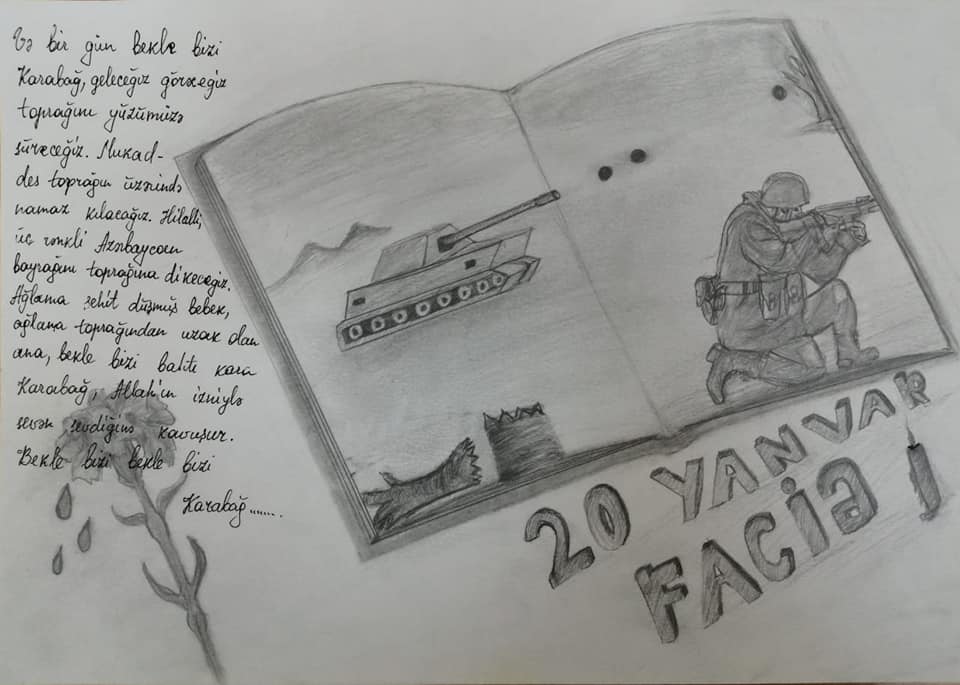 Və bir gün bekle bizi
Karabağ, geleceğiz göreceğiz
toprağını yüzümüzə
süreceğiz. Mukad-
des toprağın üzərində
namaz kılacağız. Hilalli,
üç rənkli Azərbaycan
bayrağını toprağına dikeceğiz.
Ağlama şehit düşmüş bebek,
ağlama toprağından uzak olan
ana, bekle bizi bahtı kara
Karabağ, Allah'ın izniylə
sevən sevdiğinə kavuşur.
Bekle bizi bekle bizi
Karabağ.......
20 YANVAR
FACİƏ